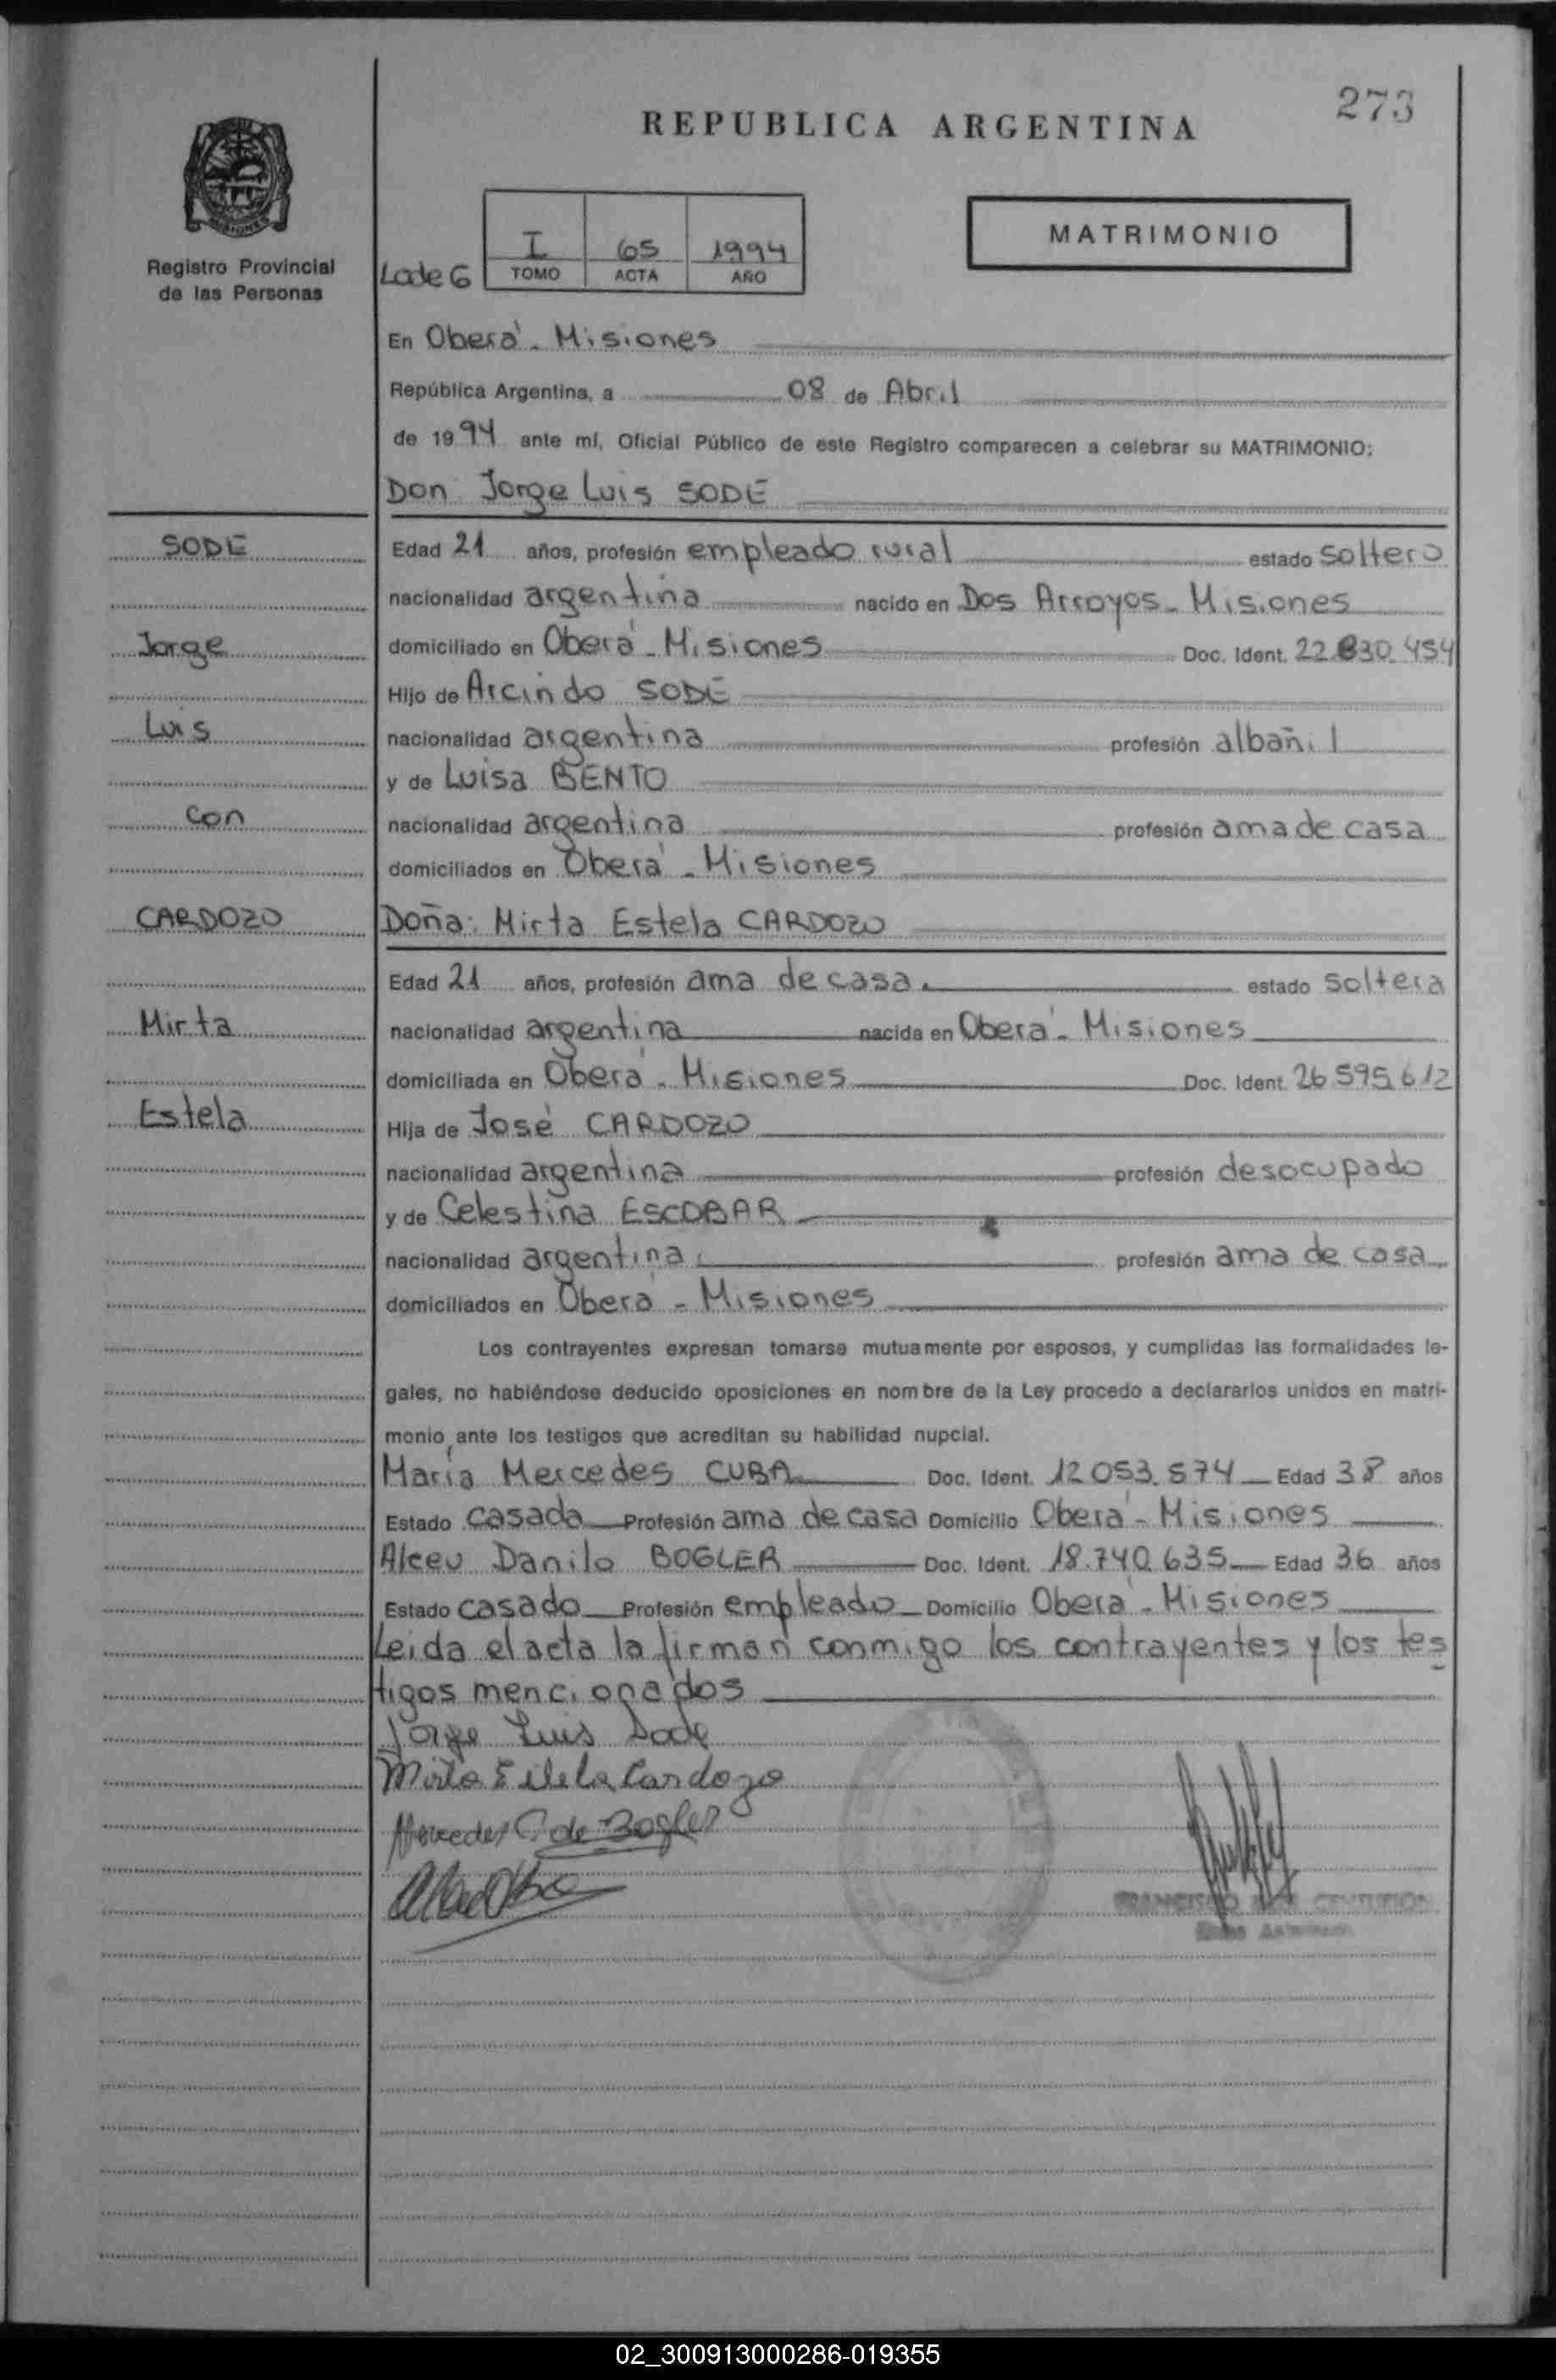 273
REPUBLICA ARGENTINA
MISIONES
Registro Provincial
de las Personas
MATRIMONIO
I 65 1994
TOMO ACTA AÑO
En Oberá - Misiones
República Argentina, a 08 de Abril
de 1994 ante mí, Oficial Público de este Registro comparecen a celebrar su MATRIMONIO:
Don Jorge Luis SODE
SODE
Edad 21 años, profesión empleado rural estado soltero
nacionalidad argentina nacido en Dos Arroyos - Misiones
Jorge
domiciliado en Oberá - Misiones Doc. Ident. 22.830.454
Hijo de Arcindo SODE
Luis
nacionalidad argentina profesión albañil
y de Luisa BENTO
con
nacionalidad argentina profesión ama de casa
domiciliados en Oberá - Misiones
CARDOZO
Doña: Mirta Estela CARDOZO
Edad 21 años, profesión ama de casa. estado soltera
Mirta
nacionalidad argentina nacida en Oberá - Misiones
domiciliada en Oberá - Misiones Doc. Ident. 26.595.612
Estela
Hija de José CARDOZO
nacionalidad argentina profesión desocupado
y de Celestina ESCOBAR
nacionalidad argentina profesión ama de casa
domiciliados en Oberá - Misiones
Los contrayentes expresan tomarse mutuamente por esposos, y cumplidas las formalidades le-
gales, no habiéndose deducido oposiciones en nombre de la Ley procedo a declararlos unidos en matri-
monio, ante los testigos que acreditan su habilidad nupcial.
María Mercedes CUBA Doc. Ident. 12.053.574 Edad 38 años
Estado casada Profesión ama de casa Domicilio Oberá - Misiones
Alceu Danilo BOGLER Doc. Ident. 18.740.635 Edad 36 años
Estado casado Profesión empleado Domicilio Oberá - Misiones
Leida el acta la firman conmigo los contrayentes y los tes
tigos mencionados
Jorge Luis Sode
Mirta Estela Cardozo
Mercedes C. de Bogler
FRANCISCO CENTURION
02_300913000286-019355